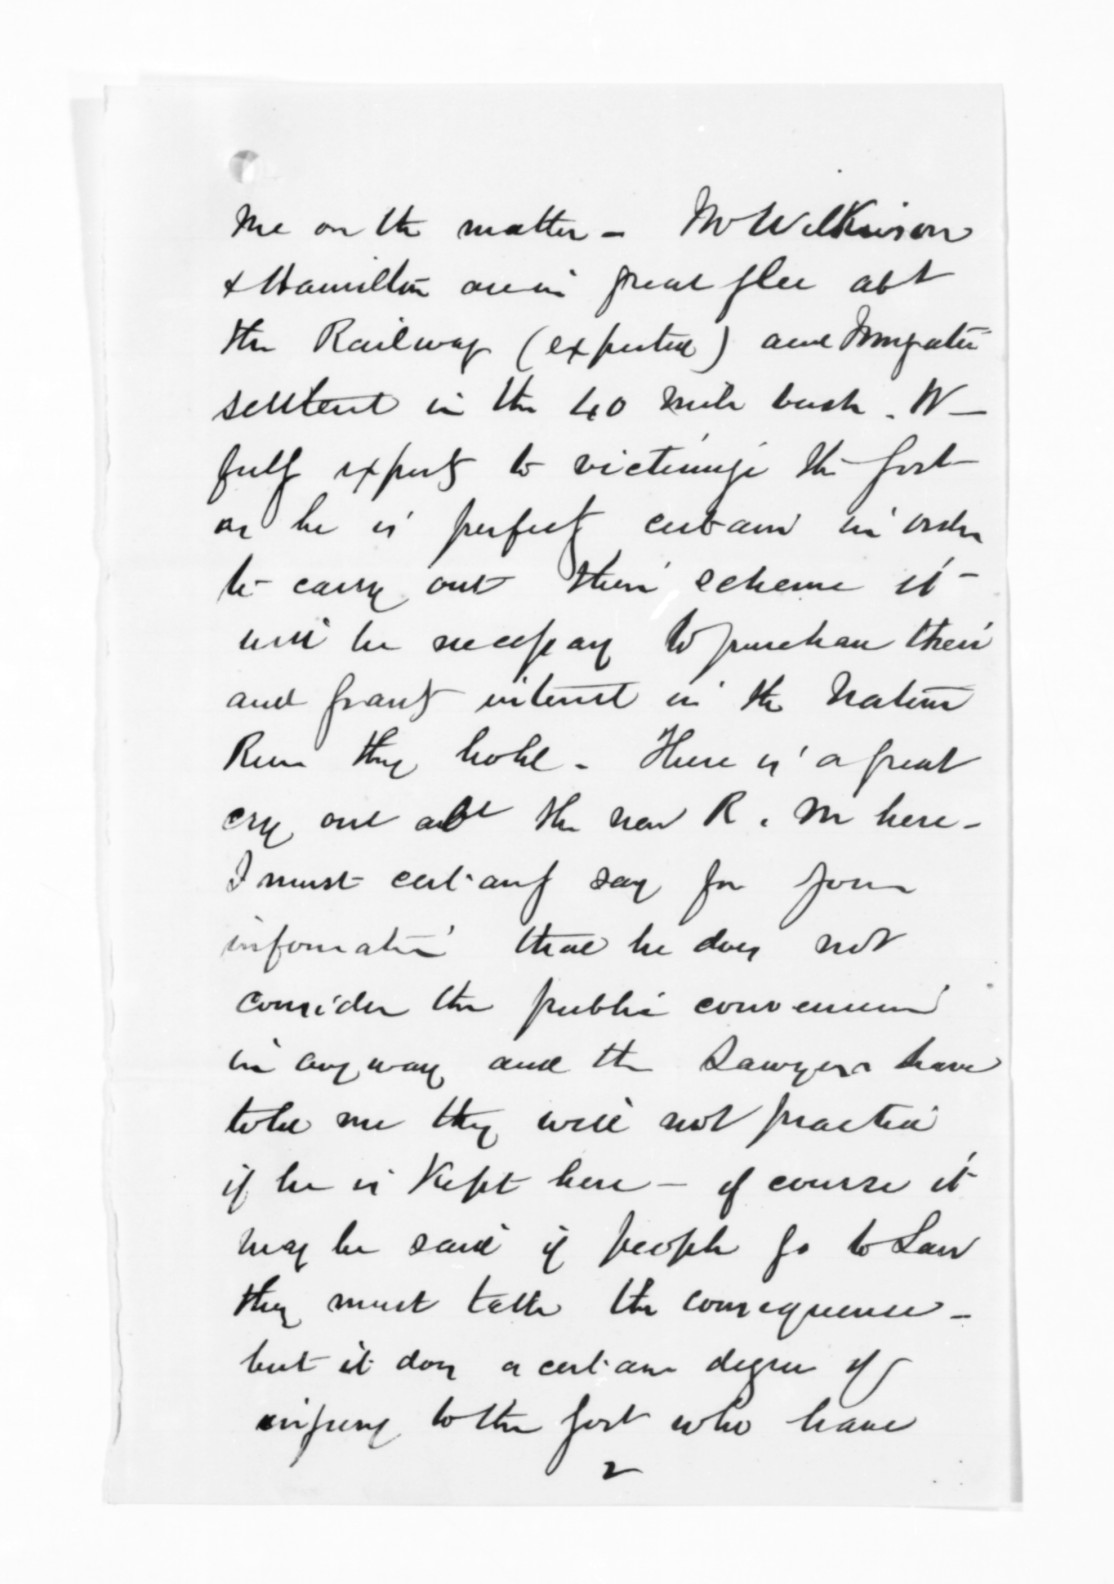 me on the matter - Mr Wilkinson
& Hamilton are in great glee abt
the Railway (expected) and Immgatn
settlent in the 40 mile bush. W -
fully expects to victimize the Govt
as he is perfectly certain in order
to carry out their scheme it
will be necessary to purchase their
and grants interest in the Native
Run they hold - There is a great
cry out abt the new R. M here -
I must certainly say for your
information that he does not
consider the public convenience
in any way and the Lawyers have
told me they will not practice
if he is Kept here - of course it
may be said if people go to Law
they must take the consequence -
but it does a certain degree of
injury to the Govt who have
2